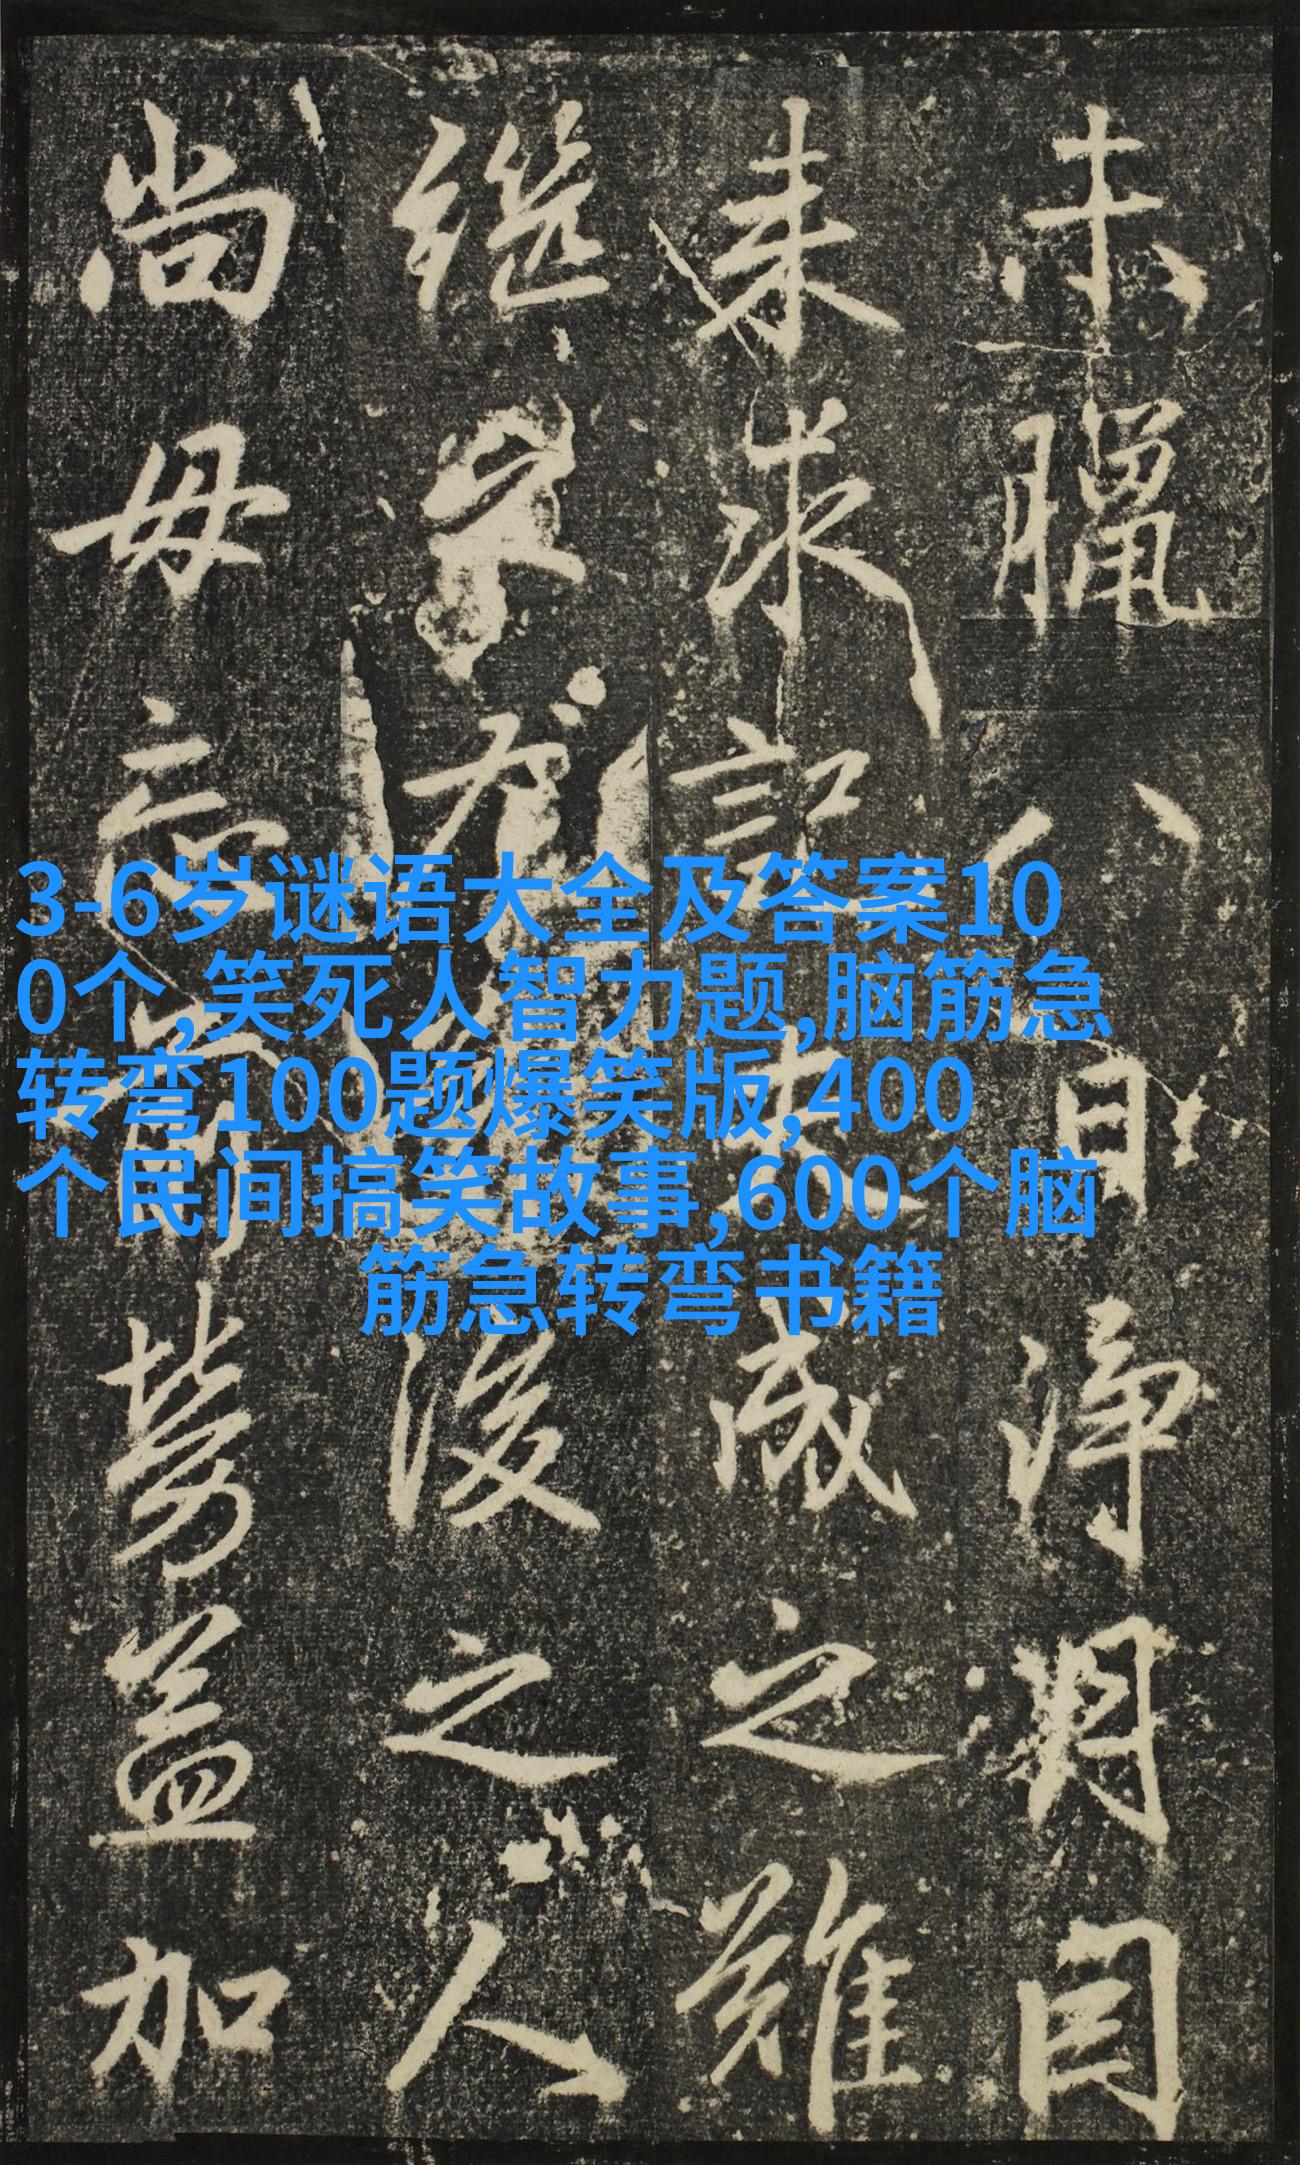 未臘八日淨
来求記之雖
继後之人
尚毋忘劳益加
3-6岁谜语大全及答案10
0个,笑死人智力题,脑筋急
转弯100题爆笑版,400
个民间搞笑故事,600个脑
筋急转弯书籍